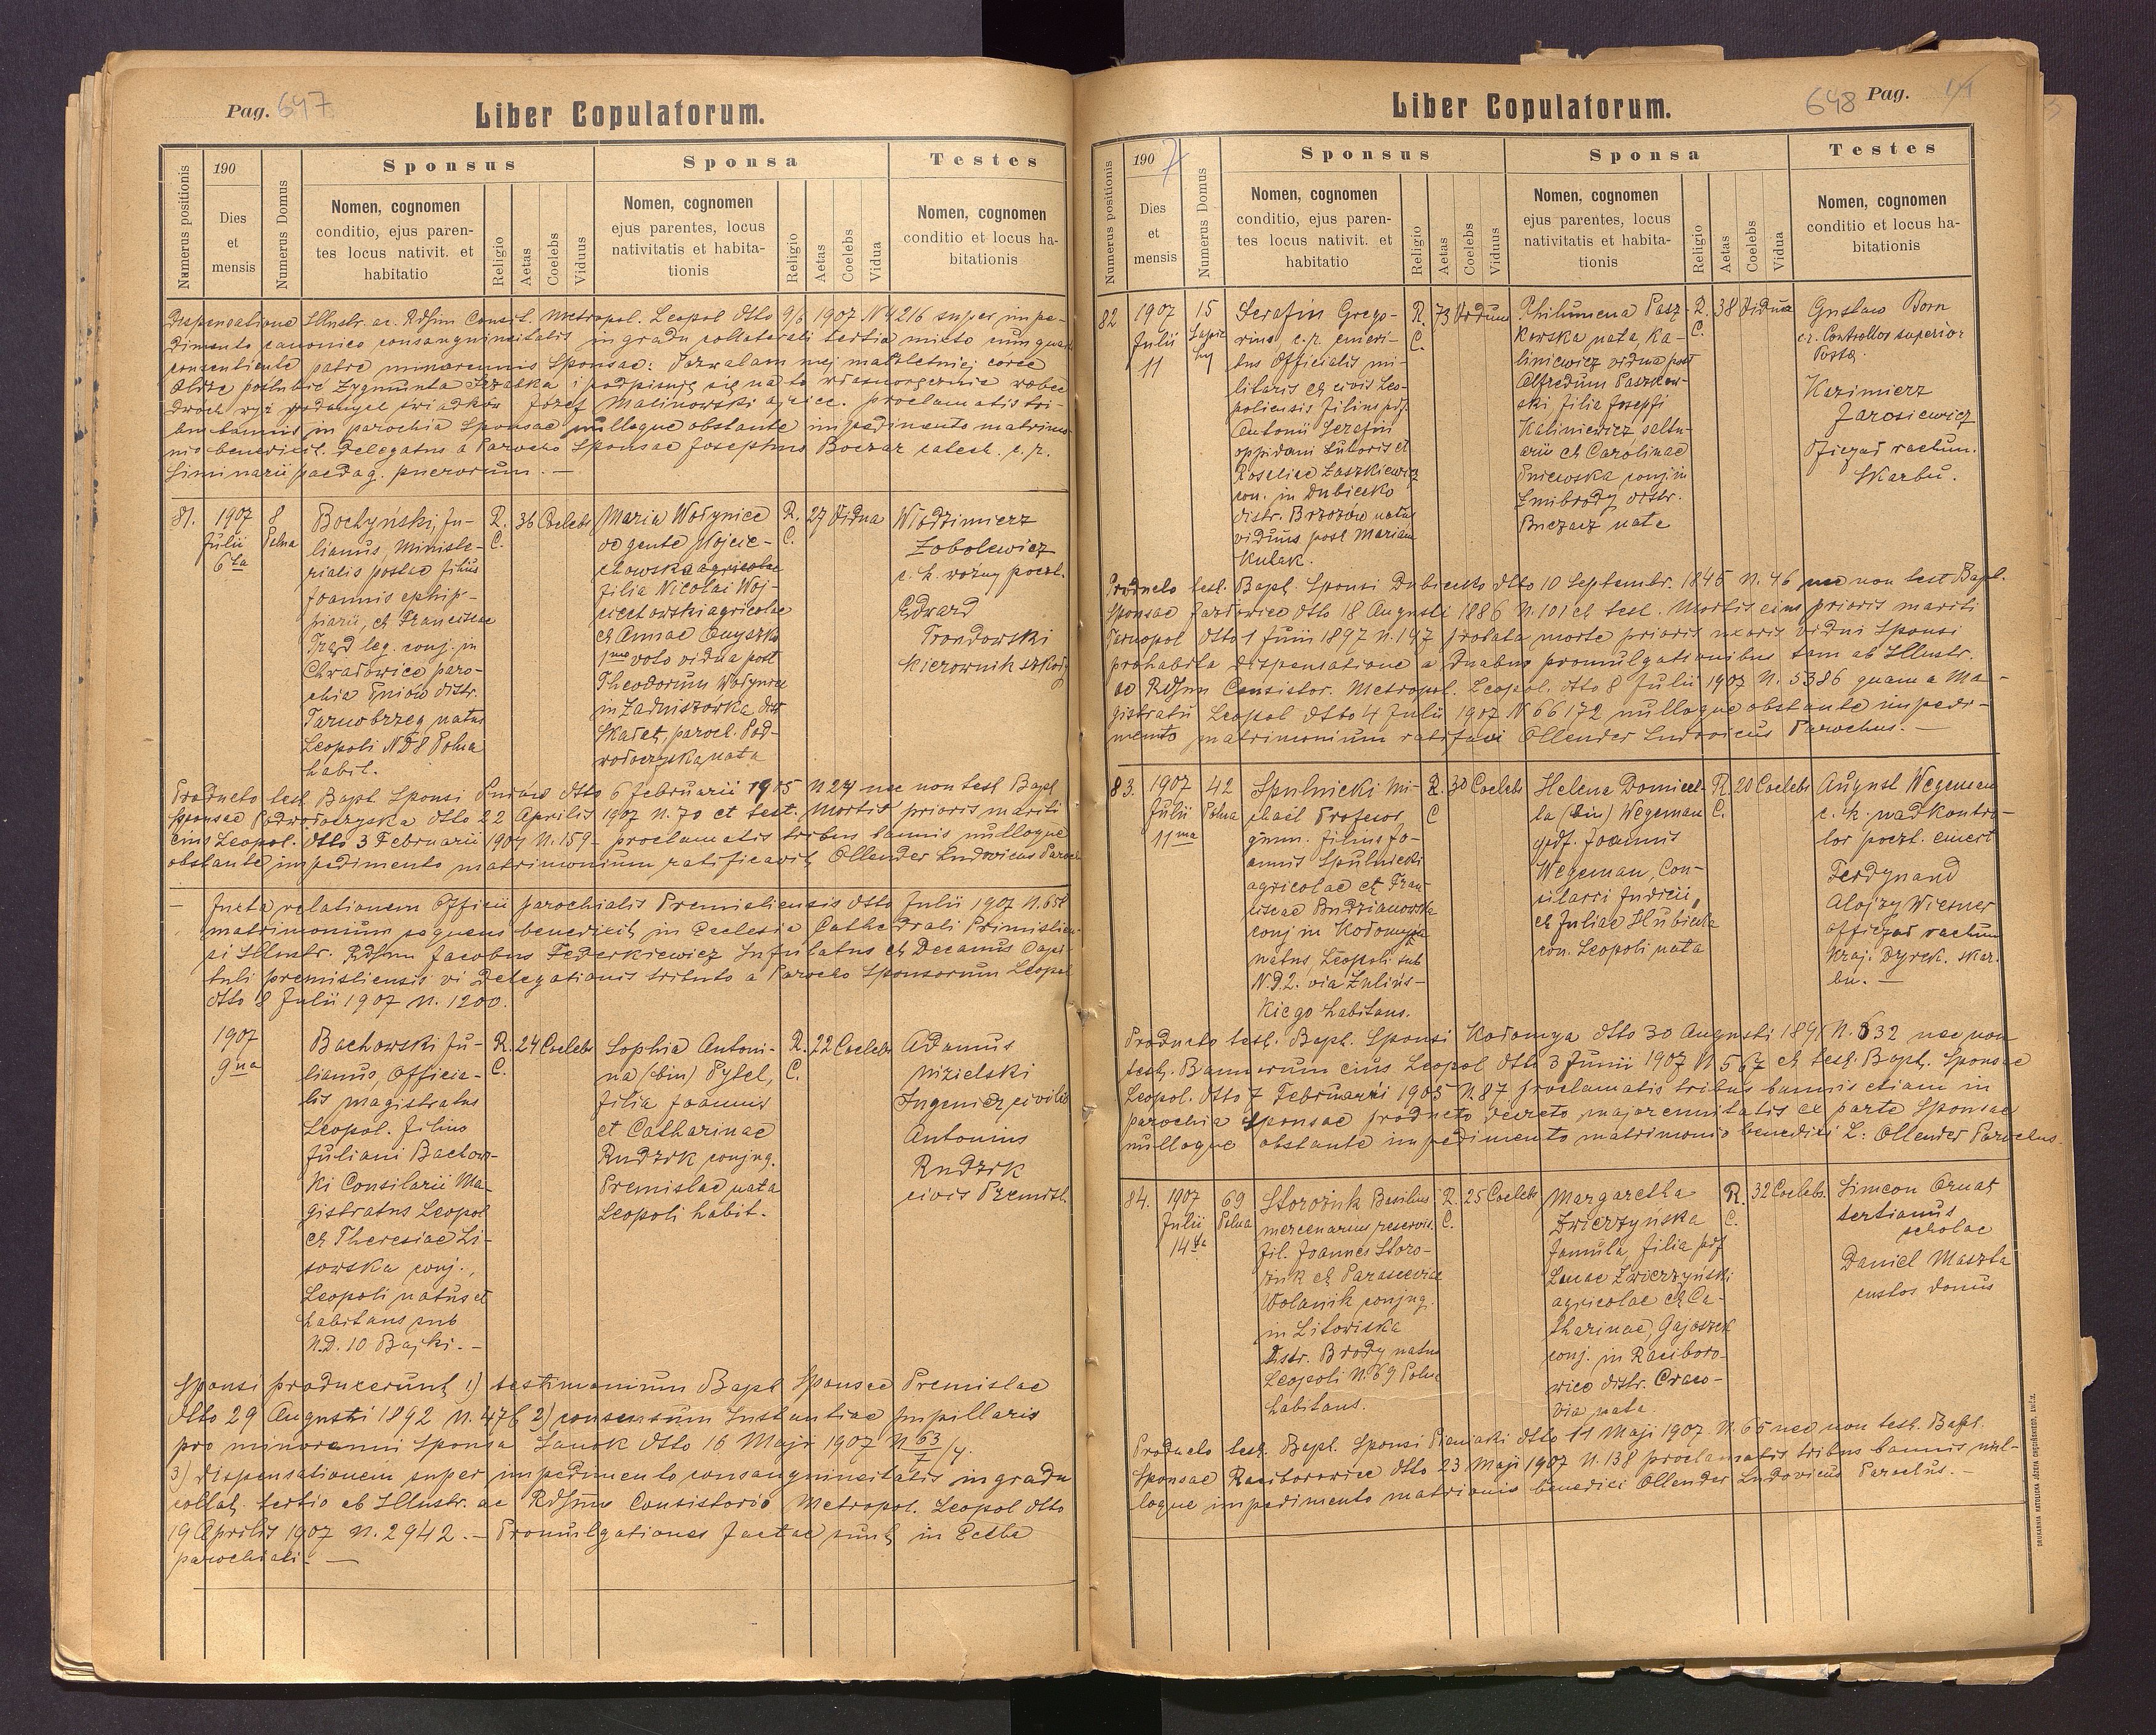 Pag. 647
Liber Copulatorum.
Numerus positionis
190
Dies
et
mensis
Numerus Domus
Sponsus
Nomen, cognomen
conditio, ejus paren-
tes locus nativit. et
habitatio
Religio
Aetas
Coelebs
Viduus
Sponsa
Nomen, cognomen
ejus parentes, locus
nativitatis et habita-
tionis
Religio
Aetas
Coelebs
Vidua
Testes
Nomen, cognomen
conditio et locus ha-
bitationis
Dispensatione Illustr. ac. Rdssimi Consist. Metropol. Leopol dtto 9/6 1907 N 4216 super impe-
dimento canonico consanguinitatis in gradu collaterali tertio mixto cum quarto
consentiente patre minorennis Sponsae: Zezwalam mej małoletniej córce
poślubić Zygmunta i podpisuję się na to własnoręcznie wobec
dwóch wyż podanych świadków Józef Malinowski ojciec. proclamatis tri-
bus bannis in parochia Sponsae nulloque obstante impedimento matrimo-
nio benedixit. Delegatus a Parocho Sponsae Josephus Boczar catech. c. r.
Siminarii paedag. puerorum. —
81.
1907
Julii
6ta
8
Polna
Bochyński, Ju-
lianus, Ministe-
rialis postae filius
Joannis ephip-
piarii, et Franciscae
Frąd leg. conj. in
Chwałowice paro-
chia Pniow distr.
Tarnobrzeg natus
Leopoli ND 8 Polna
habit.
R.
C.
36
Coelebs
Maria Wołyniec
de gente Wojcie-
chowska agricolae
filia Nicolai Woj-
ciechowski agricolae
et Annae Onyszko
1mo voto vidua post
Theodorum Wołyniec
in Zadniszowka, distr
Skałat, paroch. Pod-
wołoczyska, nata
R.
C.
27
Vidua
Włodzimierz
Zobolewicz
c. k. woźny poczt.
Edward
Trondowski
Kierownik szkoły
Producto test. Bapt. Sponsi Pniów dtto 6 Februarii 1905 N 27 nec non test Bapt
Sponsae Podwołoczyska dtto 22 Aprilis 1907 N. 70 et test. Mortis prioris mariti
eius Leopol. dtto 3 Februarii 1907 N. 159 – proclamatis tribus bannis nulloque
obstante impedimento matrimonium ratificavit Ollender Ludovicus Paroch
— Juxta relationem Officii parochialis Premisliensis dtto Julii 1907 N. 651
matrimonium sequens benedixit in Ecclesia Cathedrali Primislien-
si Illustr. Rdssimus Jacobus Federkiewicz Infulatus et Decanus Capi-
tuli premisliensis vi Delegationis tributo a Parocho Sponsorum Leopol
dtto 8 Julii 1907 N. 1200.
1907
9na
Bachowski Ju-
lianus, Officia-
lis magistratus
Leopol. filius
Juliani Bachow-
ki Consilarii Ma-
gistratus Leopol
et Theresiae Li-
sowska conj.,
Leopoli natus et
habitans sub
N.D. 10 Bajki. –
R.
C.
24
Coelebs
Sophia Antoni-
na (bin) Pytel,
filia Joannis
et Catharinae
Rudzik conjug.
Premislae nata
Leopoli habit.
R.
C.
22
Coelebs
Adamus
Nizielski
Ingenier civilis
Antonius
Rudzik
civis Przemisl.
Sponsi producerunt 1) testimonium Bapt Sponsae Premislae
dtto 29 Augusti 1892 N. 476 2) consensum Instantiae pupillaris
pro minorenni Sponsa Sanok dtto 16 Maji 1907 N 63/7/4.
3) dispensationem super impedimento consanguineitatis in gradu
collat. tertio ab Illustr. ac Rdssimo Consistorio Metropol. Leopol dtto
19 Aprilis 1907 N. 2942. – Promulgationes factae sunt in Eccla
parochiali. —
Liber Copulatorum.
648 Pag.
Numerus positionis
1907
Dies
et
mensis
Numerus Domus
Sponsus
Nomen, cognomen
conditio, ejus paren-
tes locus nativit. et
habitatio
Religio
Aetas
Coelebs
Viduus
Sponsa
Nomen, cognomen
ejus parentes, locus
nativitatis et habita-
tionis
Religio
Aetas
Coelebs
Vidua
Testes
Nomen, cognomen
conditio et locus ha-
bitationis
82
1907
Julii
11
15
Serafin Grego-
rius, c.r. emeri-
tus Officialis mi-
litaris et civis Leo-
poliensis filius pdf.
Antonii Serafin
oppidani Sutoris et
Rosaliae Laszkiewicz
con. in Dubiecko
distr. Brzozów natus
viduus post Mariam
Kulak.
R.
C.
73
Viduus
Philumena Pasz-
kowska nata, Ka-
liniewicz vidua post
Alfredum Paszkow-
ski filia Josephi
Kaliniewicz saltu-
arii et Carolinae
Sniewska conj. in
Zmibrody distr.
Buczacz nata
R.
C.
38
Vidua
Gustaw Born
c.r. Controllor superior
Postae.
Kazimierz
Jarosiewicz
Oficyał rachun.
Skarbu.
Producto test. Bapt. Sponsi Dubiecko dtto 10 Septembr. 1845 N. 46 nec non test Bapt.
Sponsae Jazłowiec dtto 18 Augusti 1886 N. 101 et test. Mortis eius prioris mariti
Tarnopol dtto 1 Junii 1897 N. 147 probata morte prioris uxoris vidui Sponsi
prohabita dispensatione a duabus promulgationibus tam ab Illustr.
ac Rdssimo Consistor. Metropol. Leopol. dtto 8 Julii 1907 N. 5386 quam a Ma-
gistratu Leopol dtto 4 Julii 1907 N 66172 nulloque obstante impedi-
mento matrimonium ratifavi Ollender Ludovicus Parochus. —
83.
1907
Julii
11ma
42
Polna
Spulnicki Mi-
chael Profesor
gimn. filius Jo-
annis Spulnicki
agricolae et Fran-
ciscae Budzianowska
conj in Kołomyja
natus, Leopoli sub
N.D.2. via Zulińs-
kiego habitans.
R.
C
30
Coelebs
Helena Domicel-
la (bin) Wegeman
pdf. Joannis
Wegeman, Con-
siliarii Judicii,
et Juliae Hubicka
con. Leopoli nata
R
C.
20
Coelebs
August Wegeman
c. k. nadkontro-
lor poczt. emeryt
Ferdynand
Alojzy Wiesner
Offizyał rachun
Kraj. Dyrek. skar-
bu. —
Producto test. Bapt. Sponsi Kołomya dtto 30 Augusti 189 N. 632 nec non
test. Bannorum eius Leopol dtto 3 Junii 1907 N 567 et test. Bapt. Sponsae
Leopol. dtto 7 Februarii 1905 N. 87. proclamatis tribus bannis etiam in
parochia Sponsae producto decreto majorennitatis ex parte Sponsae
nulloque obstante impedimento matrimonio benedixi L: Ollender Parochus.
84.
1907
Julii
14ta
69
Polna
Storożuk Basilius
mercenarius reservis.
fil. Joannes Storo-
żuk et Parasceviae
Wolanik conjug.
in Litowiska
distr. Brody natus
Leopoli N. 69 Polna
habitans.
R.
C.
25
Coelebs
Margaretha
Zwierzyńska
famula, filia pdf
Lucae Zwierzyński
agricolae et Ca-
tharinae, Gajoszek
conj. in Raciboro-
wice distr. Craco-
via nata.
R.
C.
32
Coelebs.
Simeon Ornat
tertianus
scholae
Daniel Maszta
custos domus
Producto test. Bapt. Sponsi Pieniaki dtto 11 Maji 1907. N. 65 nec non test. Bapt.
Sponsae Raciborowice dtto 23 Maji 1907 N. 138 proclamatis tribus bannis nul-
loque impedimento matrionio benedixi Ollender Ludovicus Parochus. —